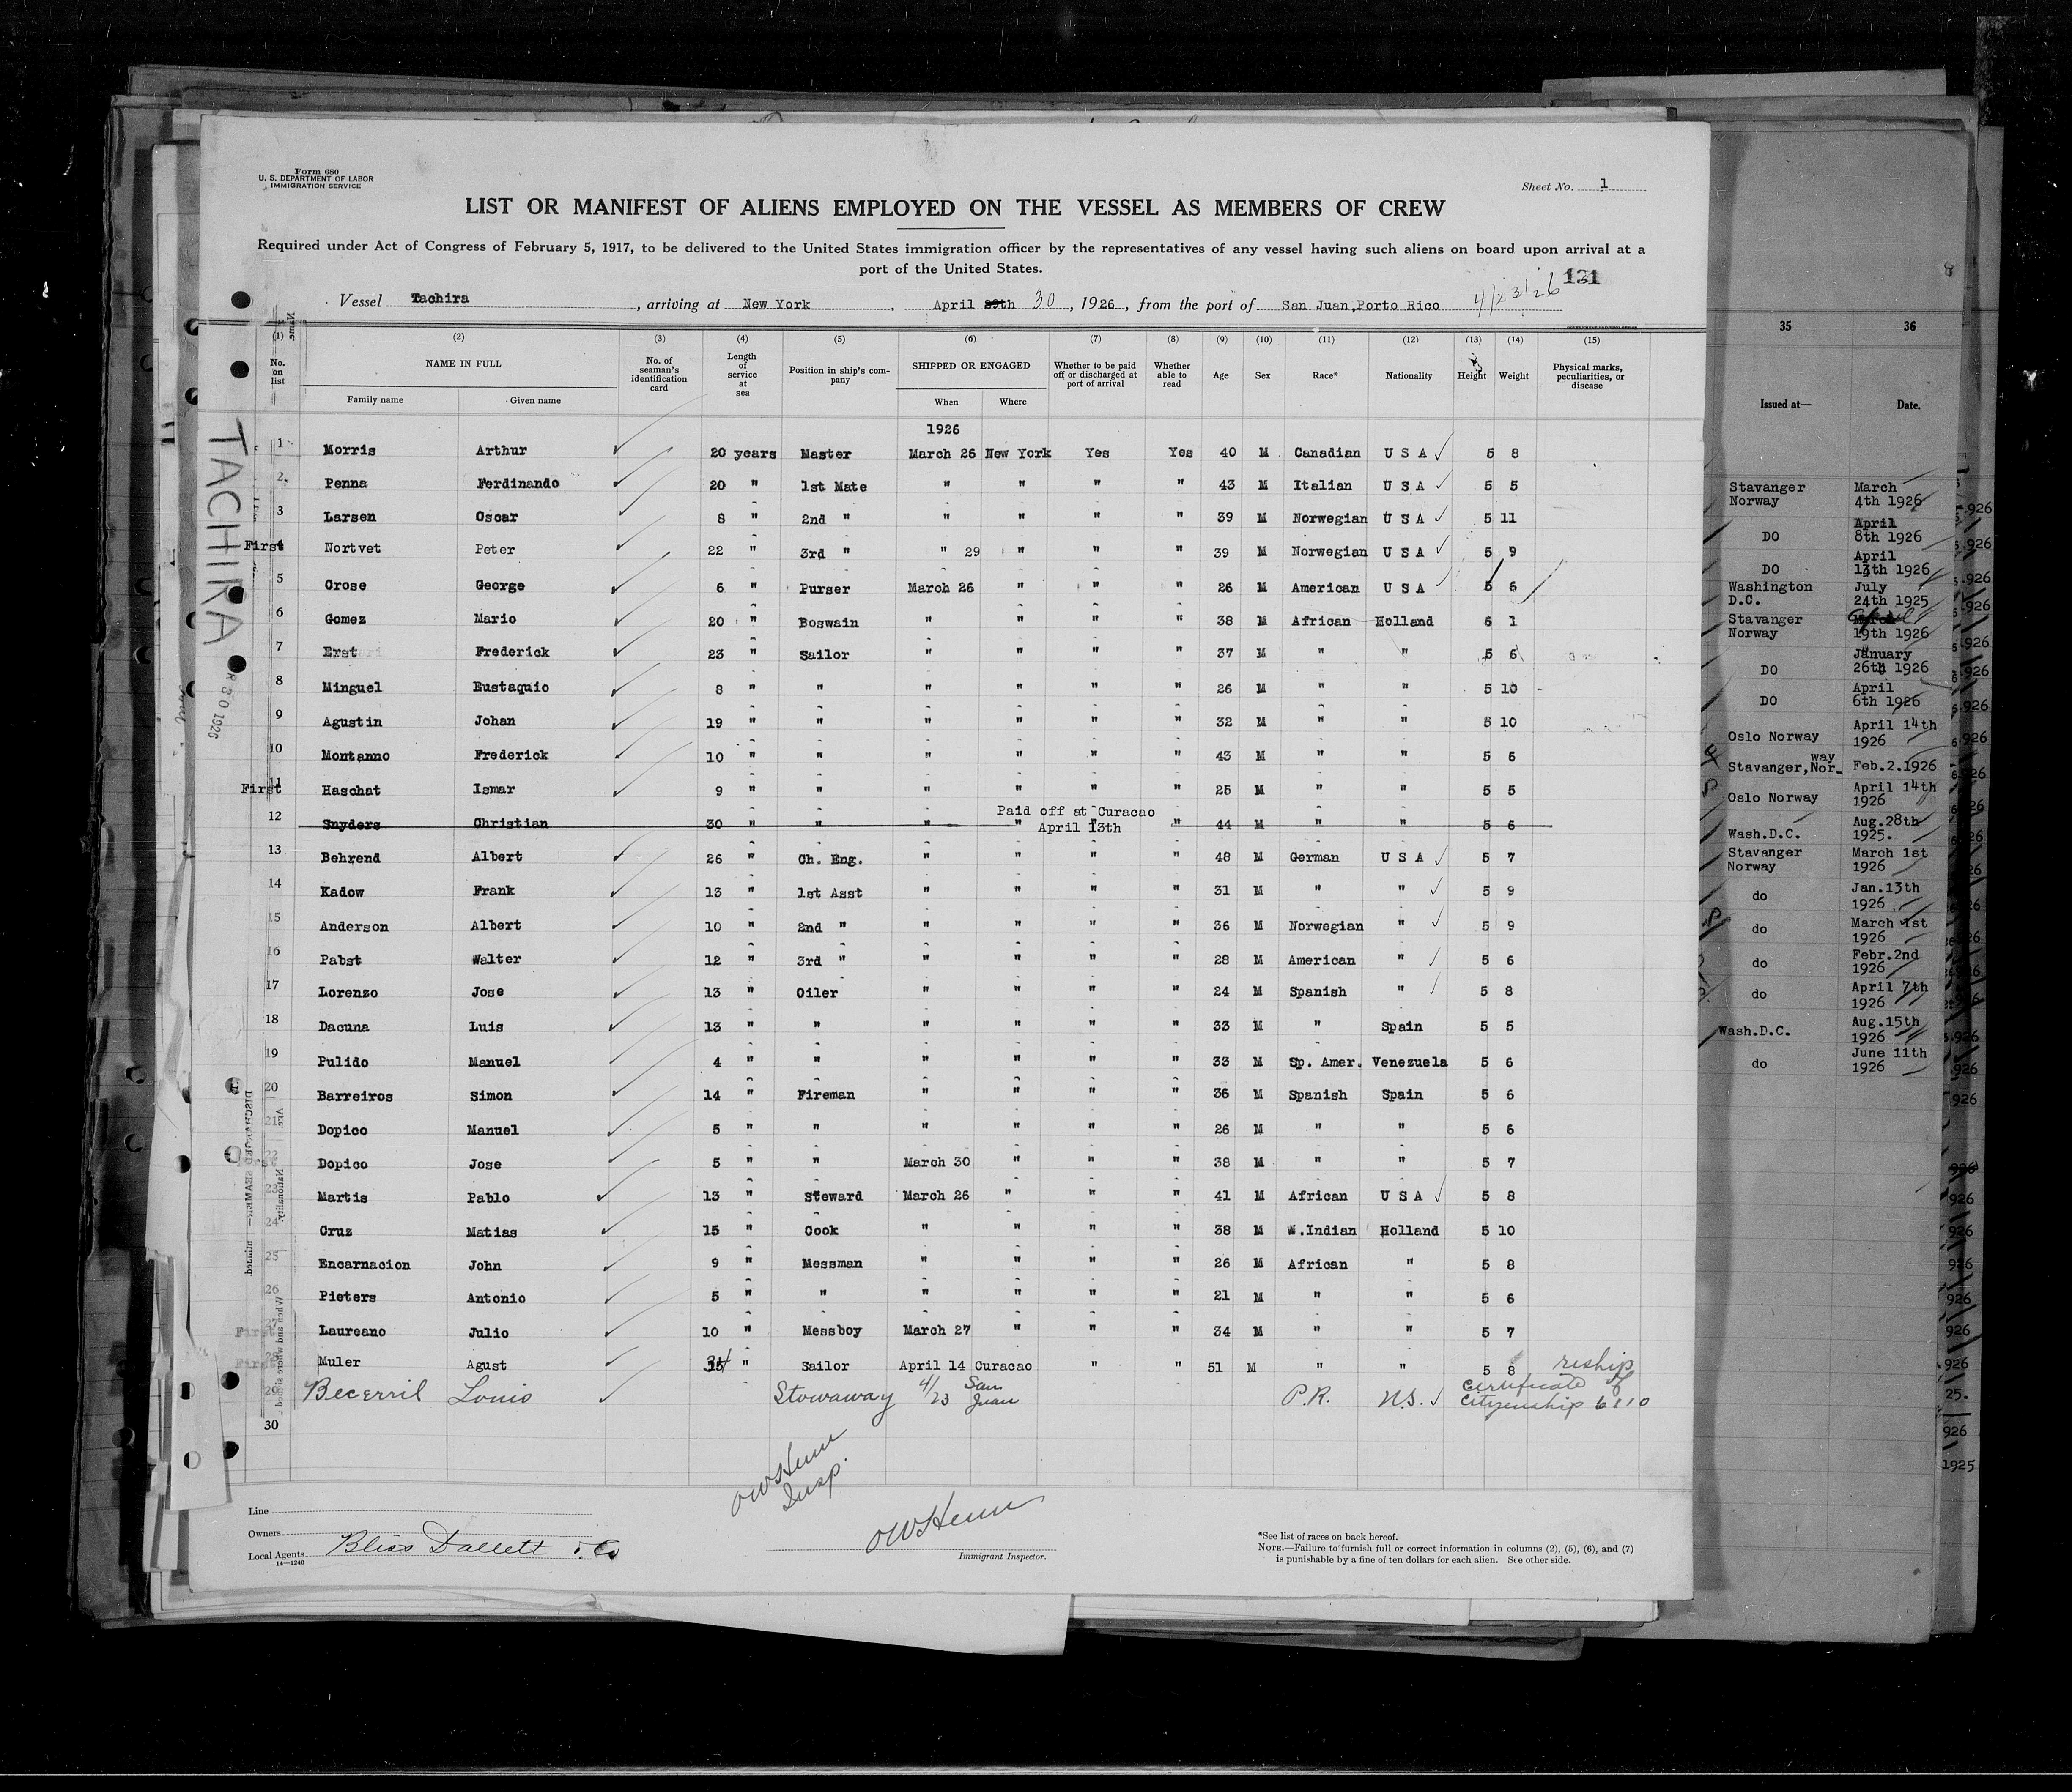 Form 680
U. S. DEPARTMENT OF LABOR
IMMIGRATION SERVICE
Sheet No. 1
LIST OR MANIFEST OF ALIENS EMPLOYED ON THE VESSEL AS MEMBERS OF CREW
Required under Act of Congress of February 5, 1917, to be delivered to the United States immigration officer by the representatives of any vessel having such aliens on board upon arrival at a
port of the United States.
131
Vessel Tachira, arriving at New York, April 29th 30, 1926, from the port of San Juan,Porto Rico 4/23/26
(1) (2) (3) (4) (5) (6) (7) (8) (9) (10) (11) (12) (13) (14) (15)
No. on list NAME IN FULL Family name Given name No. of seaman's identification card Length of service at sea Position in ship's company SHIPPED OR ENGAGED When Where Whether to be paid off or discharged at port of arrival Whether able to read Age Sex Race* Nationality Height Weight Physical marks, peculiarities, or disease
1926
1 Morris Arthur 20 years Master March 26 New York Yes Yes 40 M Canadian U S A 5 8
2 Penna Ferdinando 20 " 1st Mate " " " " 43 M Italian U S A 5 5
3 Larsen Oscar 8 " 2nd " " " " " 39 M Norwegian U S A 5 11
First 4 Nortvet Peter 22 " 3rd " " 29 " " " 39 M Norwegian U S A 5 9
5 Crose George 6 " Purser March 26 " " " 26 M American U S A 5 6
6 Gomez Mario 20 " Boswain " " " " 38 M African Holland 6 1
7 Erst Frederick 23 " Sailor " " " " 37 M " " 5 6
8 Minguel Eustaquio 8 " " " " " " 26 M " " 5 10
9 Agustin Johan 19 " " " " " " 32 M " " 5 10
10 Montanno Frederick 10 " " " " " " 43 M " " 5 6
First 11 Haschat Ismar 9 " " " " " " 25 M " " 5 5
Paid off at Curacao
12 Snyders Christian 30 " " " " April 13th " " 44 M " " 5 6
13 Behrend Albert 26 " Ch. Eng. " " " " 48 M German U S A 5 7
14 Kadow Frank 13 " 1st Asst " " " " 31 M " " 5 9
15 Anderson Albert 10 " 2nd " " " " " 36 M Norwegian " 5 9
16 Pabst Walter 12 " 3rd " " " " " 28 M American " 5 6
17 Lorenzo Jose 13 " Oiler " " " " 24 M Spanish " 5 8
18 Dacuna Luis 13 " " " " " " 33 M " Spain 5 5
19 Pulido Manuel 4 " " " " " " 33 M Sp. Amer. Venezuela 5 6
20 Barreiros Simon 14 " Fireman " " " " 36 M Spanish Spain 5 6
21 Dopico Manuel 5 " " " " " " 26 M " " 5 6
First 22 Dopico Jose 5 " " March 30 " " " 38 M " " 5 7
23 Martis Pablo 13 " Steward March 26 " " " 41 M African U S A 5 8
24 Cruz Matias 15 " Cook " " " " 38 M W.Indian Holland 5 10
25 Encarnacion John 9 " Messman " " " " 26 M African " 5 8
26 Pieters Antonio 5 " " " " " " 21 M " " 5 6
First 27 Laureano Julio 10 " Messboy March 27 " " " 34 M " " 5 7
First 28 Muler Agust 34 " Sailor April 14 Curacao " " 51 M " " 5 8 reship
29 Becerril Louis Stowaway 4/23 San Juan P.R. U.S. Certificate of Citizenship 6110
30
OWHenn
Insp.
Line
Owners
Local Agents Bliss Dallett & Co
14—1240
OWHenn
Immigrant Inspector.
*See list of races on back hereof.
NOTE.—Failure to furnish full or correct information in columns (2), (5), (6), and (7)
is punishable by a fine of ten dollars for each alien. See other side.
TACHIRA
R 30 1926
35 36
Issued at— Date.
Stavanger Norway March 4th 1926
DO April 8th 1926
DO April 13th 1926
Washington D.C. July 24th 1925
Stavanger Norway April 19th 1926
DO January 26th 1926
DO April 6th 1926
Oslo Norway April 14th 1926
Stavanger,Nor-way Feb.2.1926
Oslo Norway April 14th 1926
Wash.D.C. Aug.28th 1925.
Stavanger Norway March 1st 1926
do Jan.13th 1926
do March 1st 1926
do Febr.2nd 1926
do April 7th 1926
Wash.D.C. Aug.15th 1926
do June 11th 1926